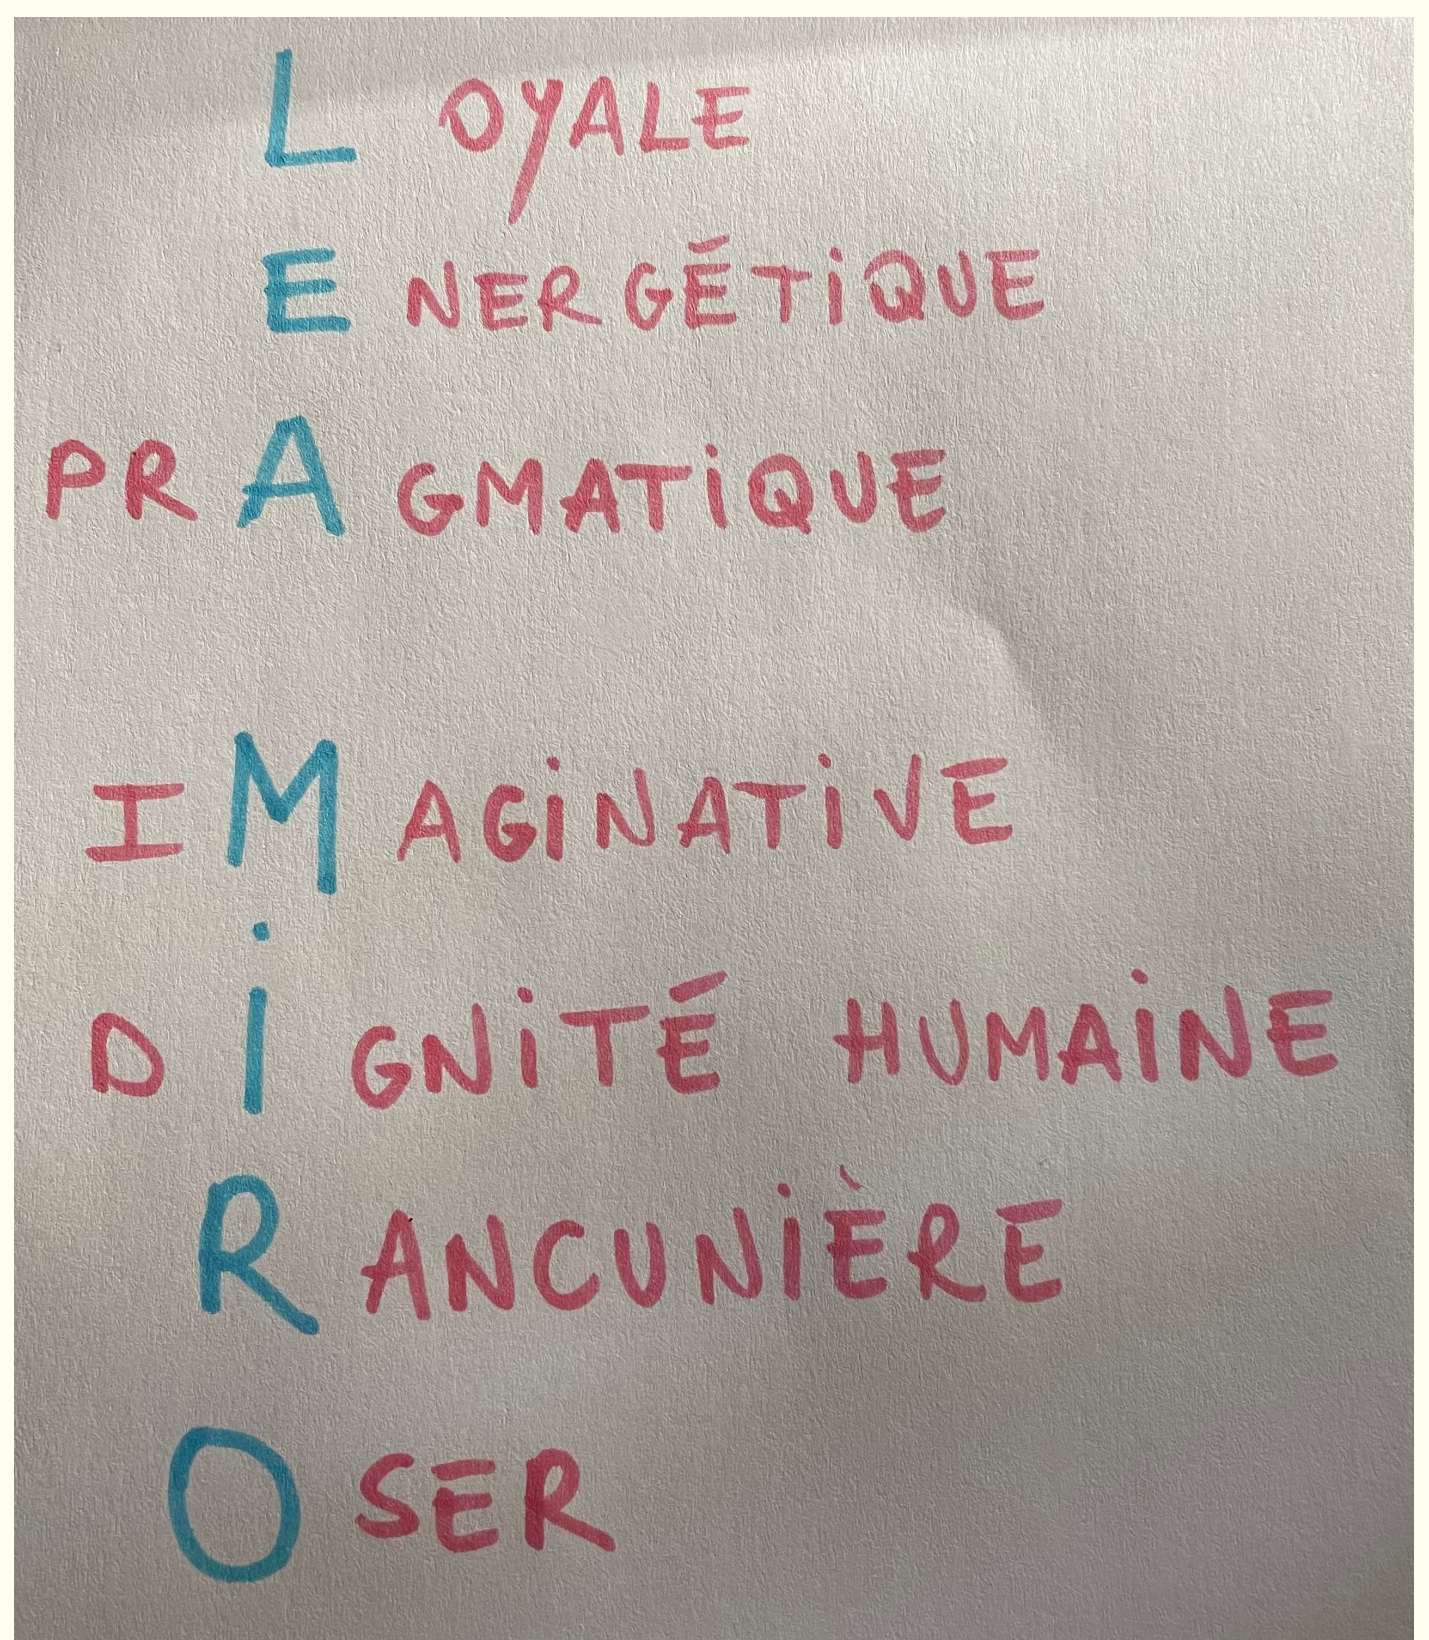 LOYALE
ENERGÉTIQUE
PRAGMATIQUE
IMAGINATIVE
DiGNITÉ HUMAINE
RANCUNIÈRE
OSER